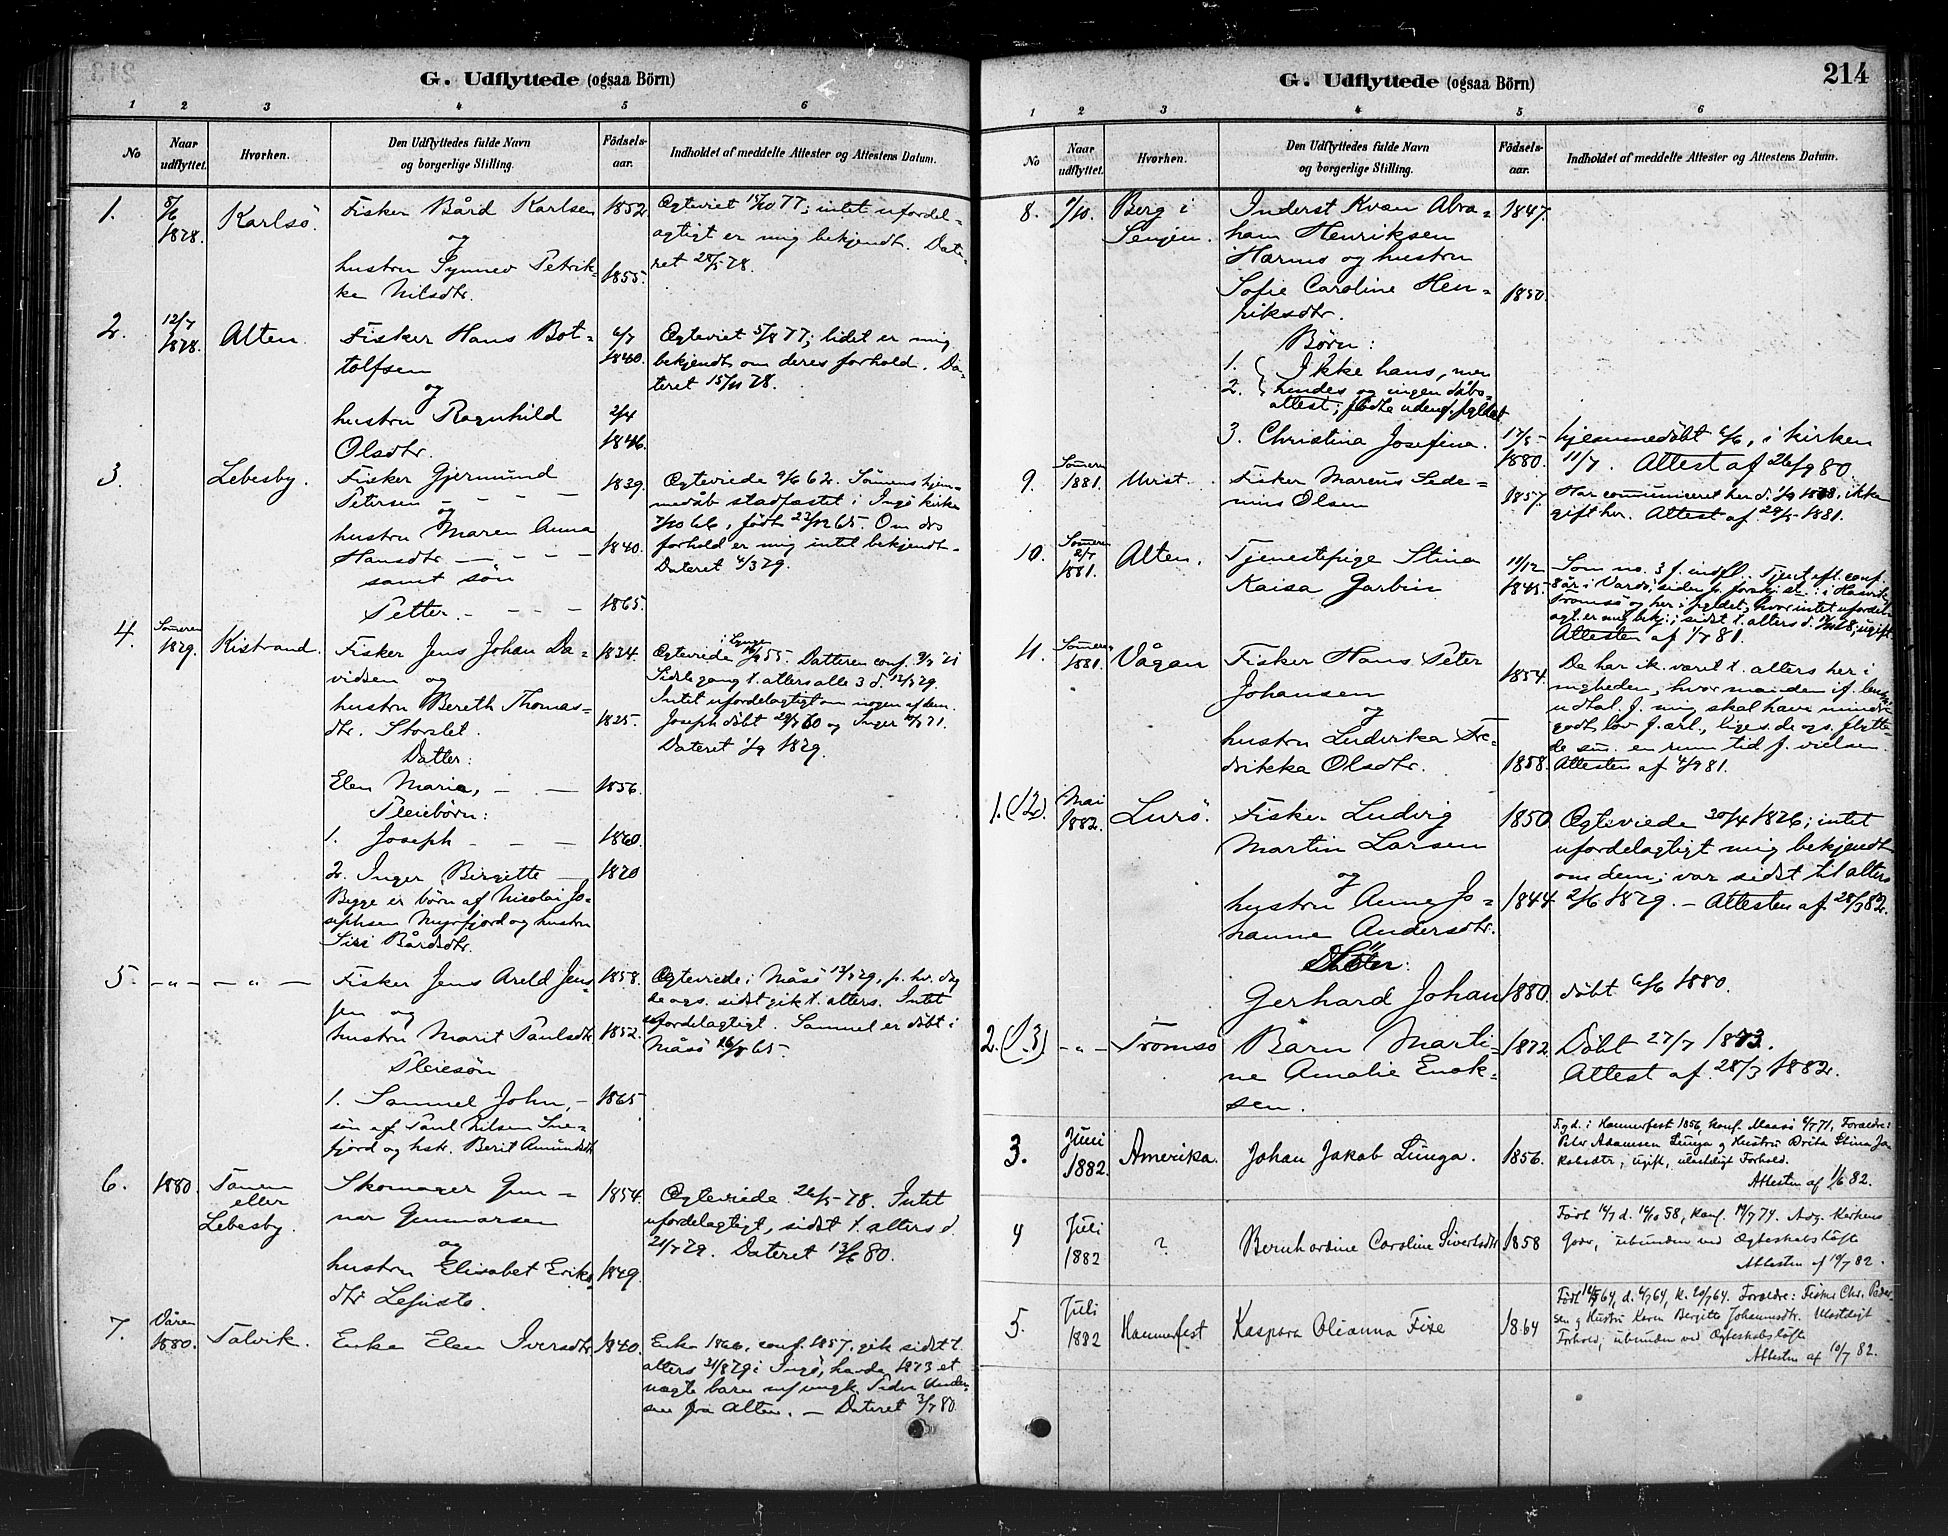 G. Udflyttede (ogsaa Börn)
1 2 3 4 5 6
No
Naar udflyttet.
Hvorhen.
Den Udflyttedes fulde Navn
og borgerlige Stilling.
Födsels-
aar.
Indholdet af meddelte Attester og Attestens Datum.
1.
5/6
1878.
Karlsö.
Fisker Bård Karlsen
og
hustru Synnev Petrik-
ke Nilsdtr.
1852
1855.
Ægteviet 14/10 77; intet ufordel-
agtigt er mig bekjendt. Date-
ret 28/5 78.
2.
12/7
1878.
Alten
Fisker Hans Bot-
tolfsen
og
hustru Ragnhild
Olsdtr.
6/7
1840.
2/4
1846.
Ægteviet 5/8 77; lidet er mig
bekjendt om deres forhold. Da-
teret 15/11 78.
3.
Lebesby.
Fisker Gjermund
Petersen
og
hustru Maren Anna
Hansdtr
samt sön
Petter
1839
1840.
1865.
Ægteviede 9/6 62. Sönnens hjem-
medåb stadfæstet i Ingö kirke
7/10 66, födt 23/12 65. Om ds
forhold er mig intet bekjendt.
Dateret 4/3 79.
4.
Someren
1879.
Kistrand.
Fisker Jens Johan Da-
vidsen og
hustru Bereth Thomas-
dtr. Storslet.
Datter:
Elen Maria,
Pleiebörn:
1. Joseph
2. Inger Birgitte
Begge er börn af Nicolai Jo-
sephsen Myrfjord og hustru
Siri Bårdsdtr.
1834
1825.
1856.
1860.
1870
i Lynge
Ægteviede 16/9 55. Datteren conf. 9/7 71
Sidste gang t. alters alle 3 d. 13/7 79.
Intet ufordelagtigt om nogen af dem.
Joseph döbt 29/7 60 og Inger 10/7 71.
Dateret 1/9 1879.
5.
Fisker Jens Areld Jens-
sen og
hustru Marit Paulsdtr.
Pleiesön
1. Samuel John,
sön af Paul Nilsen Sne-
fjord og hstr. Berit Amundsdtr.
1858.
1852.
1865.
Ægteviede i Måsö 13/7 79, p. hv. dag
de ogs. sidst gik t. alters. Intet
ufordelagtigt. Samuel er döbt i
Måsö 26/8 65.
6.
1880.
Tanen
eller
Lebesby.
Skomager Gun-
nar Gunnarsen
og
hustru Elisabet Eriks-
dtr
1854.
1849.
Ægteviede 26/5 78. Intet
ufordelagtigt, sidst t. alters d.
21/7 79. Dateret 13/6 80.
7.
Våren
1880.
Talvik.
Enke Elen Iversdtr.
1840.
Enke 1866, conf. 1857, gik sidst t.
alters 31/8 79 i Ingö, havde 1873 et
uægte barn m/ ungk. Peder Ander-
sen fra Alten. — Dateret 3/7 80.
G. Udflyttede (ogsaa Börn)
214
1 2 3 4 5 6
No
Naar udflyttet.
Hvorhen.
Den Udflyttedes fulde Navn
og borgerlige Stilling.
Födsels-
aar.
Indholdet af meddelte Attester og Attestens Datum.
8.
Berg i
Senjen.
Inderst Kvæn Abra-
ham Henriksen
Havnes og hustru
Sofie Caroline Hen-
riksdtr.
1847.
1850.
Börn:
1.
2.
Ikke hans, men
hendes og ingen dåbs-
attest; födte udenf. sgldet
3. Christina Josefina.
17/5
1880.
hjemmedöbt 6/6, i kirken
11/7. Attest af 26/9 80.
9.
Someren
1881.
Uvist.
Fisker Marius Sede-
nius Olsen
1857.
Har communiceret her d. 1/9 1878, ikke
gift her. Attest af 29/5 1881.
10.
Someren
2/7
1881.
Alten.
Tjenestepige Stina
Kaisa Garbin
11/12
1845.
Som no. 3 f. indfl. Tjent eft. conf.
8 år i Vardö, siden p. forskj. st. i Hasvik,
Tromsö og her i sgldet, hvor intet ufordel-
agt. er mig bekj.; sidst t. alters d. ugift.
Attesten af 1/7 81.
11.
Someren
1881.
Vågan
Fisker Hans Peter
Johansen
og
hustru Ludvika Fre-
drikka Olsdtr.
1854.
1858.
De har ik. været t. alters her i
migheden, hvor manden if. lens.
udtal. f. mig skal have mindre
godt lov f. ærl., liges. de ogs. flytte-
de sm. en rum tid f. vielsen.
Attesten af 4/9 81.
1.(12).
Mai
1882.
Lurö.
Fisker Ludvig
Martin Larsen
og
hustru Anne Jo-
hanne Andersdtr.
Sön:
Gerhard Johan
1850
1844
1880
Ægteviede 30/4 1876; intet
ufordelagtigt mig bekjendt
om dem; var sidst til alters
2/6 1879. — Attesten af 28/3 82.
döbt 6/6 1880.
2.(13)
Tromsö
Barn Marti-
ne Amalie Enok-
sen.
1872
Döbt 27/7 1873.
Attest af 28/3 1882.
3.
Juni
1882.
Amerika.
Johan Jakob Lunga.
1856.
F. og d. i Hammerfest 1856, konf. Maasö 9/7 71, Foraldre:
Peter Adamsen Lunga og Hustru Brita Stina Ja-
kobsdtr, ugift, ulasteligt Forhold.
Attesten af 1/6 82.
4
Juli
1882
?
Bernhardine Caroline Sivertsdtr
1858
Födt 14/7 d. 14/10 58, konf. 19/7 74. Adg. Kirkens
Goder, ubunden ved Ægteskabslöfte
Attesten af 10/7 82.
5.
Juli
1882
Hammerfest
Kaspara Olianna Fixe
1864
Foraldre: Fisker Chr. Peder-
sen og Hustru Karen Bergitte Johannesdtr. Ulasteligt
Forhold, ubunden ved Ægteskabslöfte
Attesten af 10/7 82.